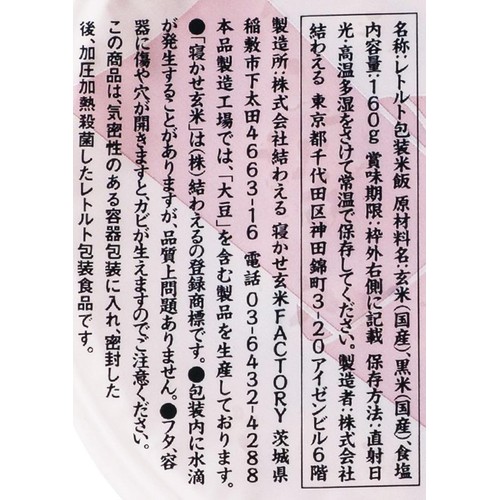 名称:レトルト包装米飯 原材料名:玄米(国産)、黒米(国産)、食塩
内容量:160g 賞味期限:枠外右側に記載 保存方法:直射日
光、高温多湿をさけて常温で保存してください。製造者:株式会社
結わえる 東京都千代田区神田錦町3-20アイゼンビル6階
製造所:株式会社結わえる 寝かせ玄米FACTORY 茨城県
稲敷市下太田4663-16 電話 03-6432-4288
本品製造工場では、「大豆」を含む製品を生産しております。
●「寝かせ玄米」は(株)結わえるの登録商標です。●包装内に水滴
が発生することがありますが、品質上問題ありません。●フタ、容
器に傷や穴が開きますと、カビが生えますのでご注意ください。
この商品は、気密性のある容器包装に入れ、密封した
後、加圧加熱殺菌したレトルト包装食品です。